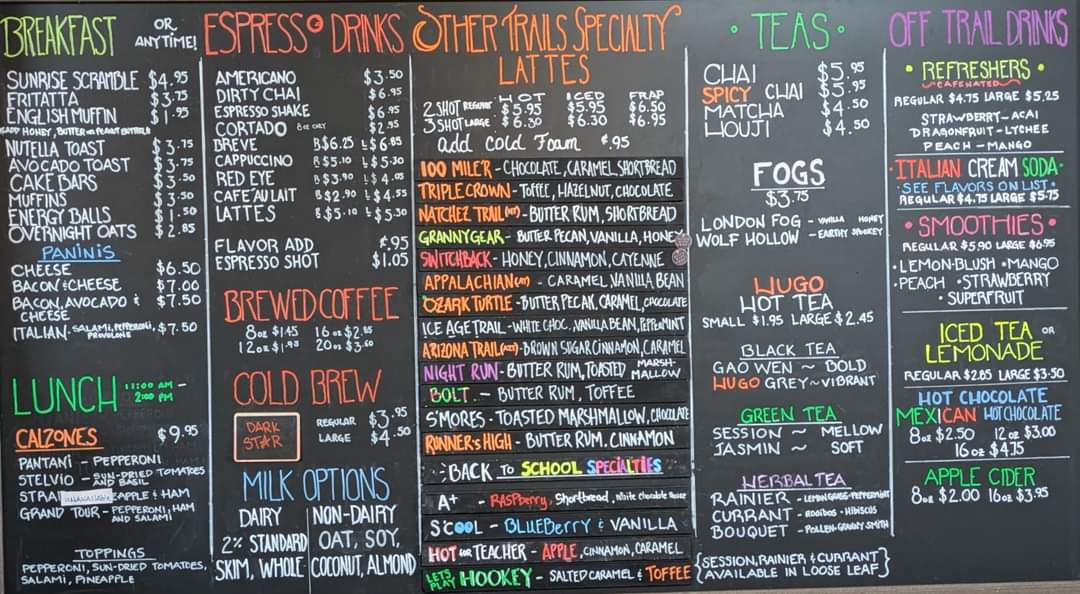 BREAKFAST OR ANYTIME!
SUNRISE SCRAMBLE $4.95
FRITATTA $3.75
ENGLISH MUFFIN $1.95
ADD HONEY, BUTTER OR PEANUT BUTTER
NUTELLA TOAST $3.75
AVOCADO TOAST $3.75
CAKE BARS $3.50
MUFFINS $3.50
ENERGY BALLS $1.50
OVERNIGHT OATS $2.85
PANINIS
CHEESE $6.50
BACON & CHEESE $7.00
BACON, AVOCADO & CHEESE $7.50
ITALIAN - SALAMI, PEPPERONI, PROVOLONE $7.50
LUNCH 11:00 AM - 2:00 PM
CALZONES $9.95
PANTANI - PEPPERONI
STELVIO - SUN-DRIED TOMATOES AND BASIL
STRA EAPPLE & HAM
GRAND TOUR - PEPPERONI, HAM AND SALAMI
TOPPINGS
PEPPERONI, SUN-DRIED TOMATOES,
SALAMI, PINEAPPLE
ESPRESSO DRINKS
AMERICANO $3.50
DIRTY CHAI $6.95
ESPRESSO SHAKE $6.95
CORTADO 8oz ONLY $2.95
BREVE R $6.25 L $6.85
CAPPUCCINO R $5.10 L $5.30
RED EYE R $3.90 L $4.05
CAFE AU LAIT R $2.90 L $4.55
LATTES R $5.10 L $5.30
FLAVOR ADD $.95
ESPRESSO SHOT $1.05
BREWED COFFEE
8oz $1.45 16oz $2.85
12oz $1.95 20oz $3.60
COLD BREW
DARK STAR
REGULAR $3.95
LARGE $4.50
MILK OPTIONS
DAIRY NON-DAIRY
2% STANDARD OAT, SOY,
SKIM, WHOLE COCONUT, ALMOND
OTHER TRAILS SPECIALTY
LATTES
HOT ICED FRAP
2 SHOT REGULAR $5.95 $5.95 $6.50
3 SHOT LARGE $6.30 $6.30 $6.95
add Cold Foam $.95
100 MILE'R - CHOCOLATE, CARAMEL, SHORTBREAD
TRIPLE CROWN - TOFFEE, HAZELNUT, CHOCOLATE
NATCHEZ TRAIL - BUTTER RUM, SHORTBREAD
GRANNY GEAR - BUTTER PECAN, VANILLA, HONEY
SWITCHBACK - HONEY, CINNAMON, CAYENNE
APPALACHIAN - CARAMEL, VANILLA BEAN
OZARK TURTLE - BUTTER PECAN, CARAMEL, CHOCOLATE
ICE AGE TRAIL - WHITE CHOC., VANILLA BEAN, PEPPERMINT
ARIZONA TRAIL - BROWN SUGAR CINNAMON, CARAMEL
NIGHT RUN - BUTTER RUM, TOASTED MARSH-MALLOW
BOLT - BUTTER RUM, TOFFEE
S'MORES - TOASTED MARSHMALLOW, CHOCOLATE
RUNNER'S HIGH - BUTTER RUM, CINNAMON
BACK TO SCHOOL SPECIALTIES
A+ - RASPberry, Shortbread, White Chocolate Sauce
S'COOL - BLUEBerry & VANILLA
HOT FOR TEACHER - APPLE, CINNAMON, CARAMEL
LET'S PLAY HOOKEY - SALTED CARAMEL & TOFFEE
• TEAS •
CHAI $5.95
SPICY CHAI $5.95
MATCHA $4.50
HOUJI $4.50
FOGS
$3.75
LONDON FOG - VANILLA HONEY
WOLF HOLLOW - EARTHY SMOKEY
HUGO
HOT TEA
SMALL $1.95 LARGE $2.45
BLACK TEA
GAO WEN ~ BOLD
HUGO GREY ~ VIBRANT
GREEN TEA
SESSION ~ MELLOW
JASMIN ~ SOFT
HERBAL TEA
RAINIER - LEMONGRASS - PEPPERMINT
CURRANT - ROOIBOS • HIBISCUS
BOUQUET - POLLEN-GRANNY SMITH
{SESSION, RAINIER & CURRANT}
{AVAILABLE IN LOOSE LEAF}
OFF TRAIL DRINKS
• REFRESHERS •
CAFENATED
REGULAR $4.75 LARGE $5.25
STRAWBERRY-ACAI
DRAGONFRUIT-LYCHEE
PEACH - MANGO
• ITALIAN CREAM SODA •
• SEE FLAVORS ON LIST •
REGULAR $4.75 LARGE $5.75
• SMOOTHIES •
REGULAR $5.90 LARGE $6.95
• LEMON-BLUSH • MANGO
• PEACH • STRAWBERRY
• SUPERFRUIT
ICED TEA OR
LEMONADE
REGULAR $2.85 LARGE $3.50
HOT CHOCOLATE
MEXICAN HOT CHOCOLATE
8oz $2.50 12oz $3.00
16oz $4.75
APPLE CIDER
8oz $2.00 16oz $3.95